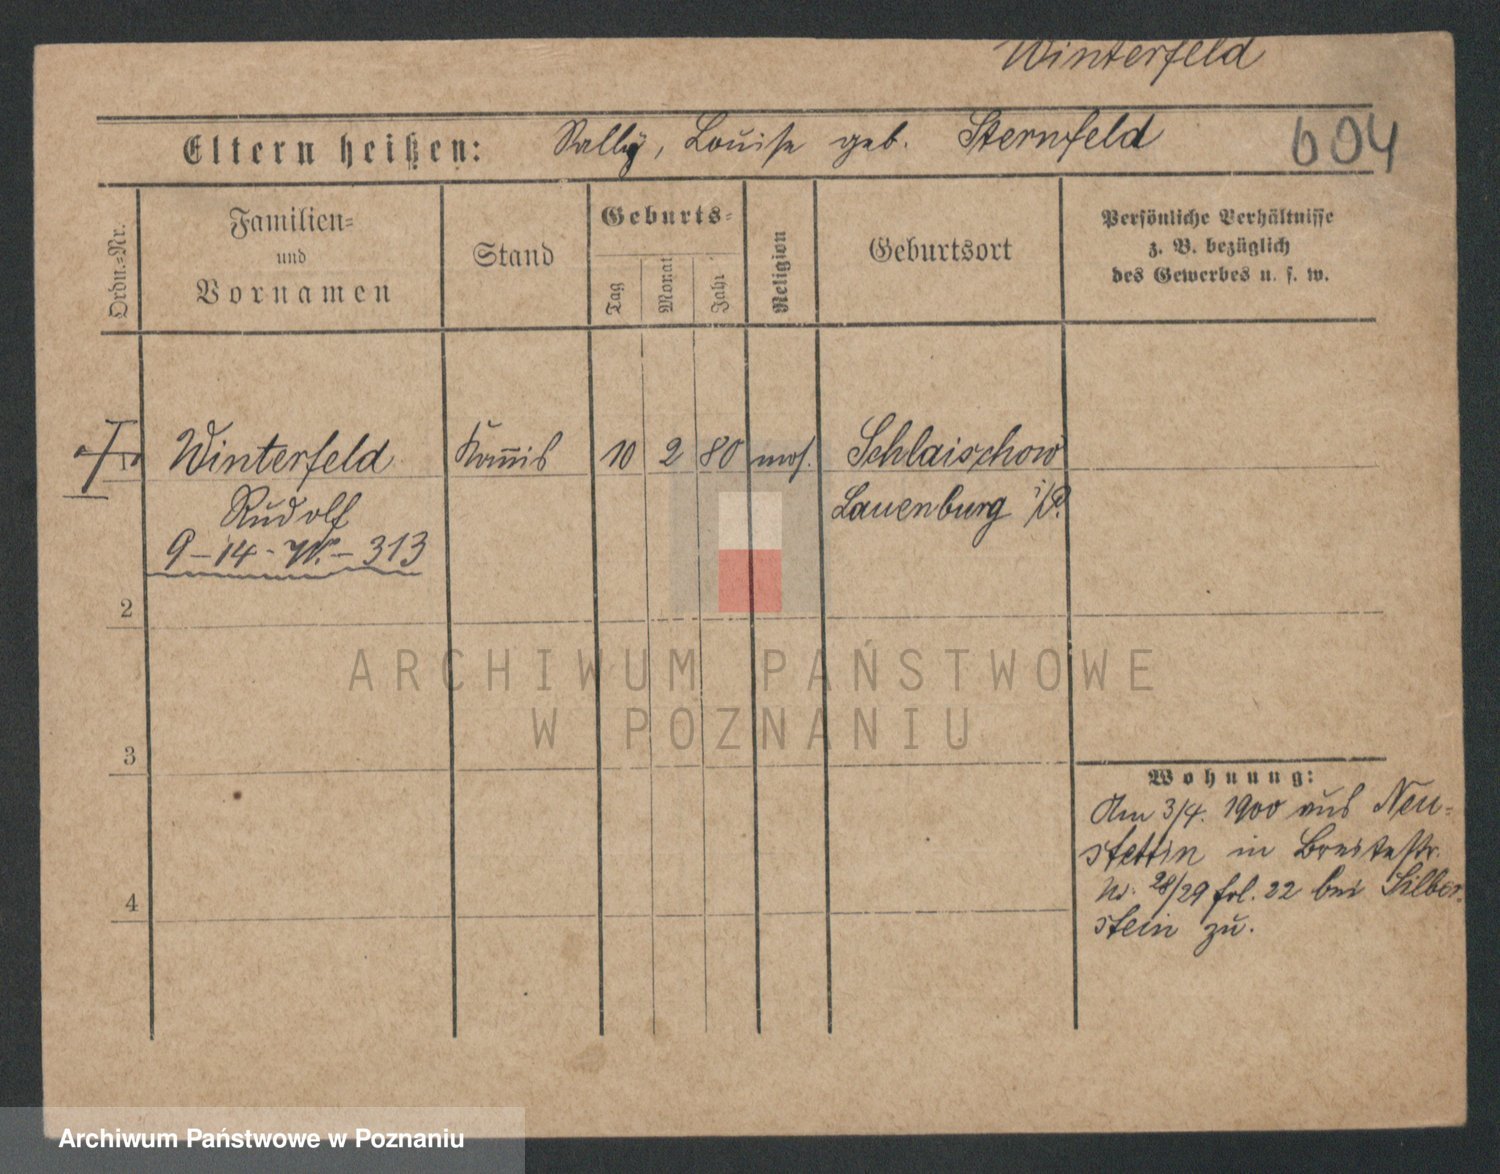 Winterfeld
Eltern heißen: Sally, Louise geb. Sternfeld
604
Ordn.-Nr.
Familien-
und
Vornamen
Stand
Geburts-
Tag
Monat
Jahr
Religion
Geburtsort
Persönliche Verhältnisse
z. B. bezüglich
des Gewerbes u. s. w.
Winterfeld Kom̄is 10 2 80 mos. Schlaischow
Rudolf Lauenburg i/P.
9-14-W.-313
2
3
4
Wohnung:
Am 3/4. 1900 aus Neu-
stettin in Breitestr.
N. 28/29 fol. 22 bei Silber-
stein zu.
ARCHIWUM PAŃSTWOWE
W POZNANIU
Archiwum Państwowe w Poznaniu